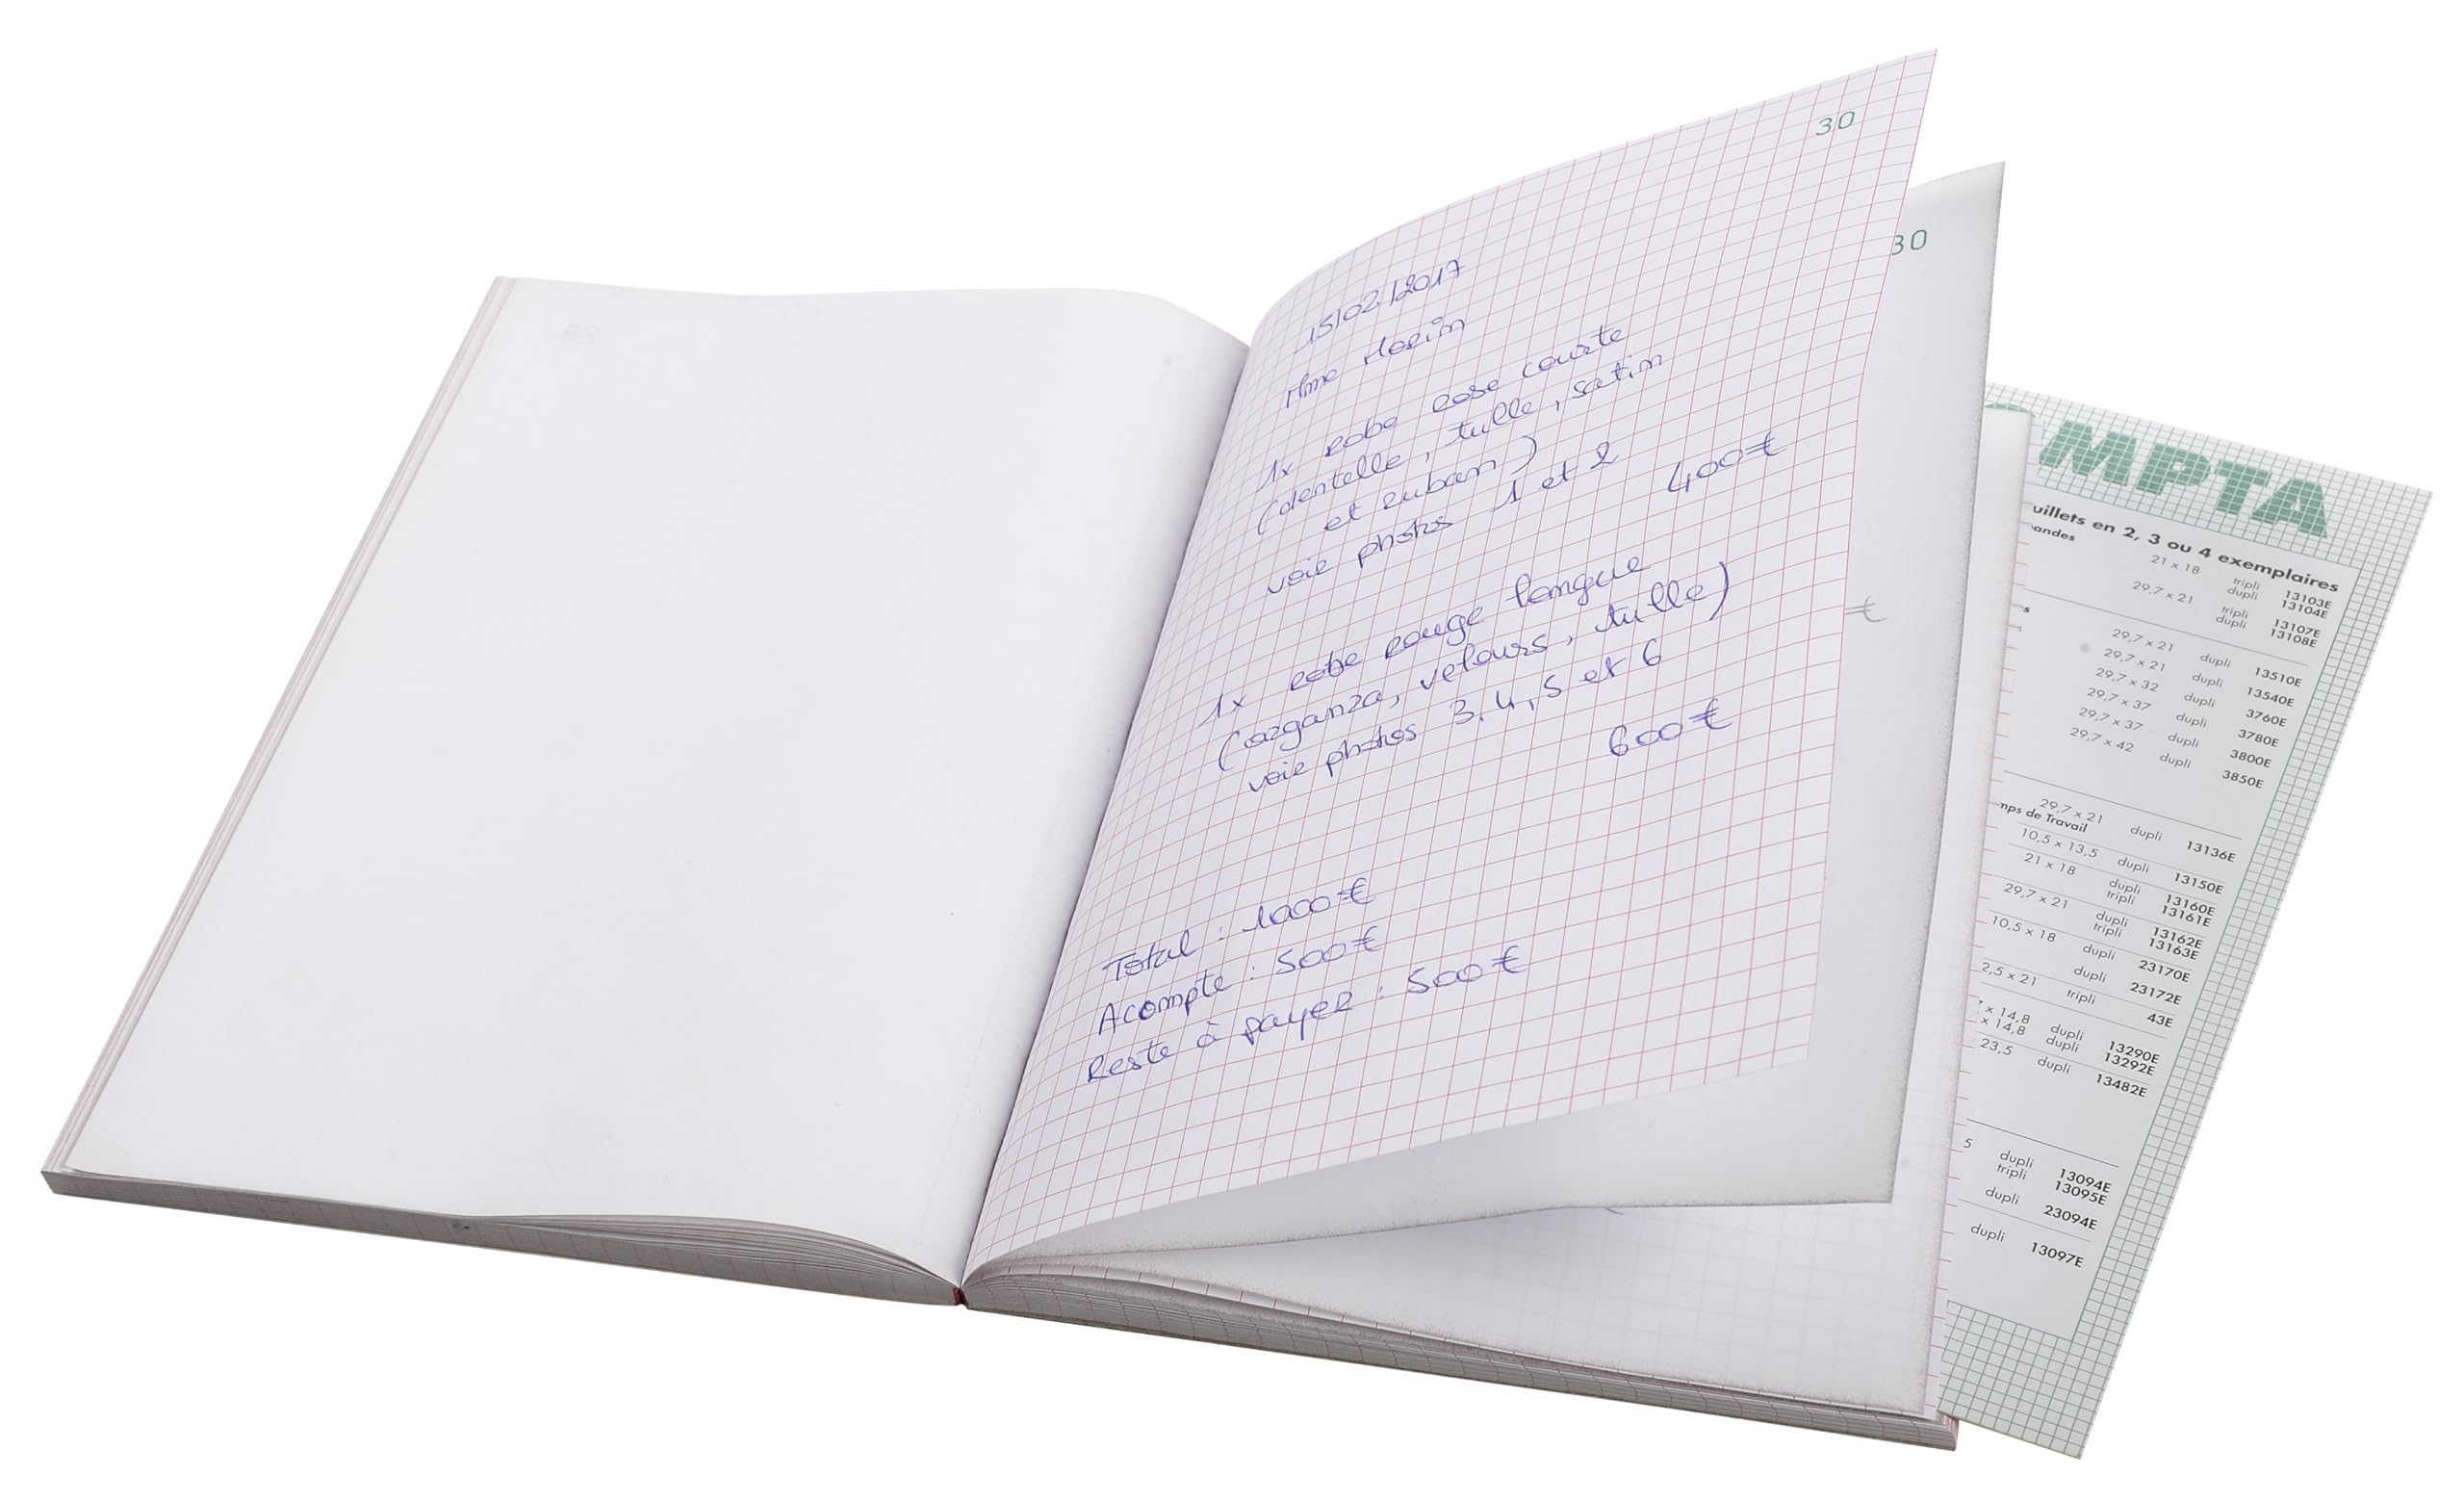 30
15/02/2017
Mme Morin
1x robe rose courte
(dentelle, tulle, satin
et ruban)
voir photos 1 et 2
400€
1x robe rouge longue
(organza, velours, tulle)
voir photos 3.4,5 et 6
600€
Total : 1000€
Acompte : 500€
Reste à payer : 500€
30
€
MPTA
uillets en 2, 3 ou 4 exemplaires
andes
21 x 18 tripli 13103E
dupli 13104E
29,7 x 21 tripli 13107E
dupli 13108E
29,7 x 21 dupli 13510E
29,7 x 21 dupli 13540E
29,7 x 32 dupli 3760E
29,7 x 37 dupli 3780E
29,7 x 37 dupli 3800E
29,7 x 42 dupli 3850E
29,7 x 21 dupli 13136E
mps de Travail
10,5 x 13,5 dupli 13150E
21 x 18 dupli 13160E
tripli 13161E
29,7 x 21 dupli 13162E
tripli 13163E
10,5 x 18 dupli 23170E
2,5 x 21 dupli 23172E
tripli 43E
x 14,8 dupli 13290E
x 14,8 dupli 13292E
23,5 dupli 13482E
5 dupli 13094E
tripli 13095E
dupli 23094E
dupli 13097E